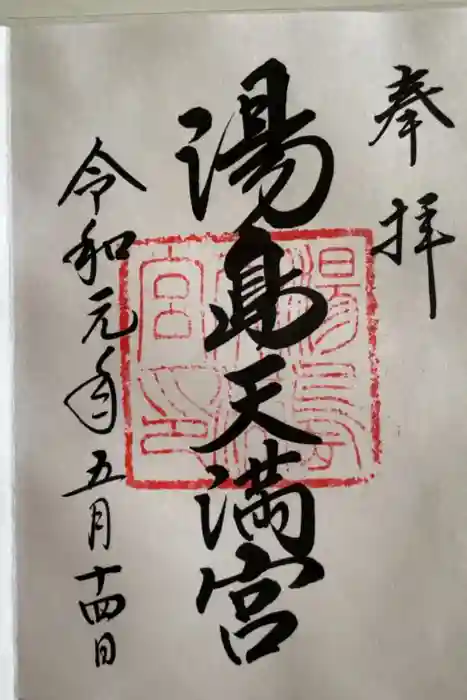 奉拝
湯島天満宮
湯島天満宮印
令和元年五月十四日